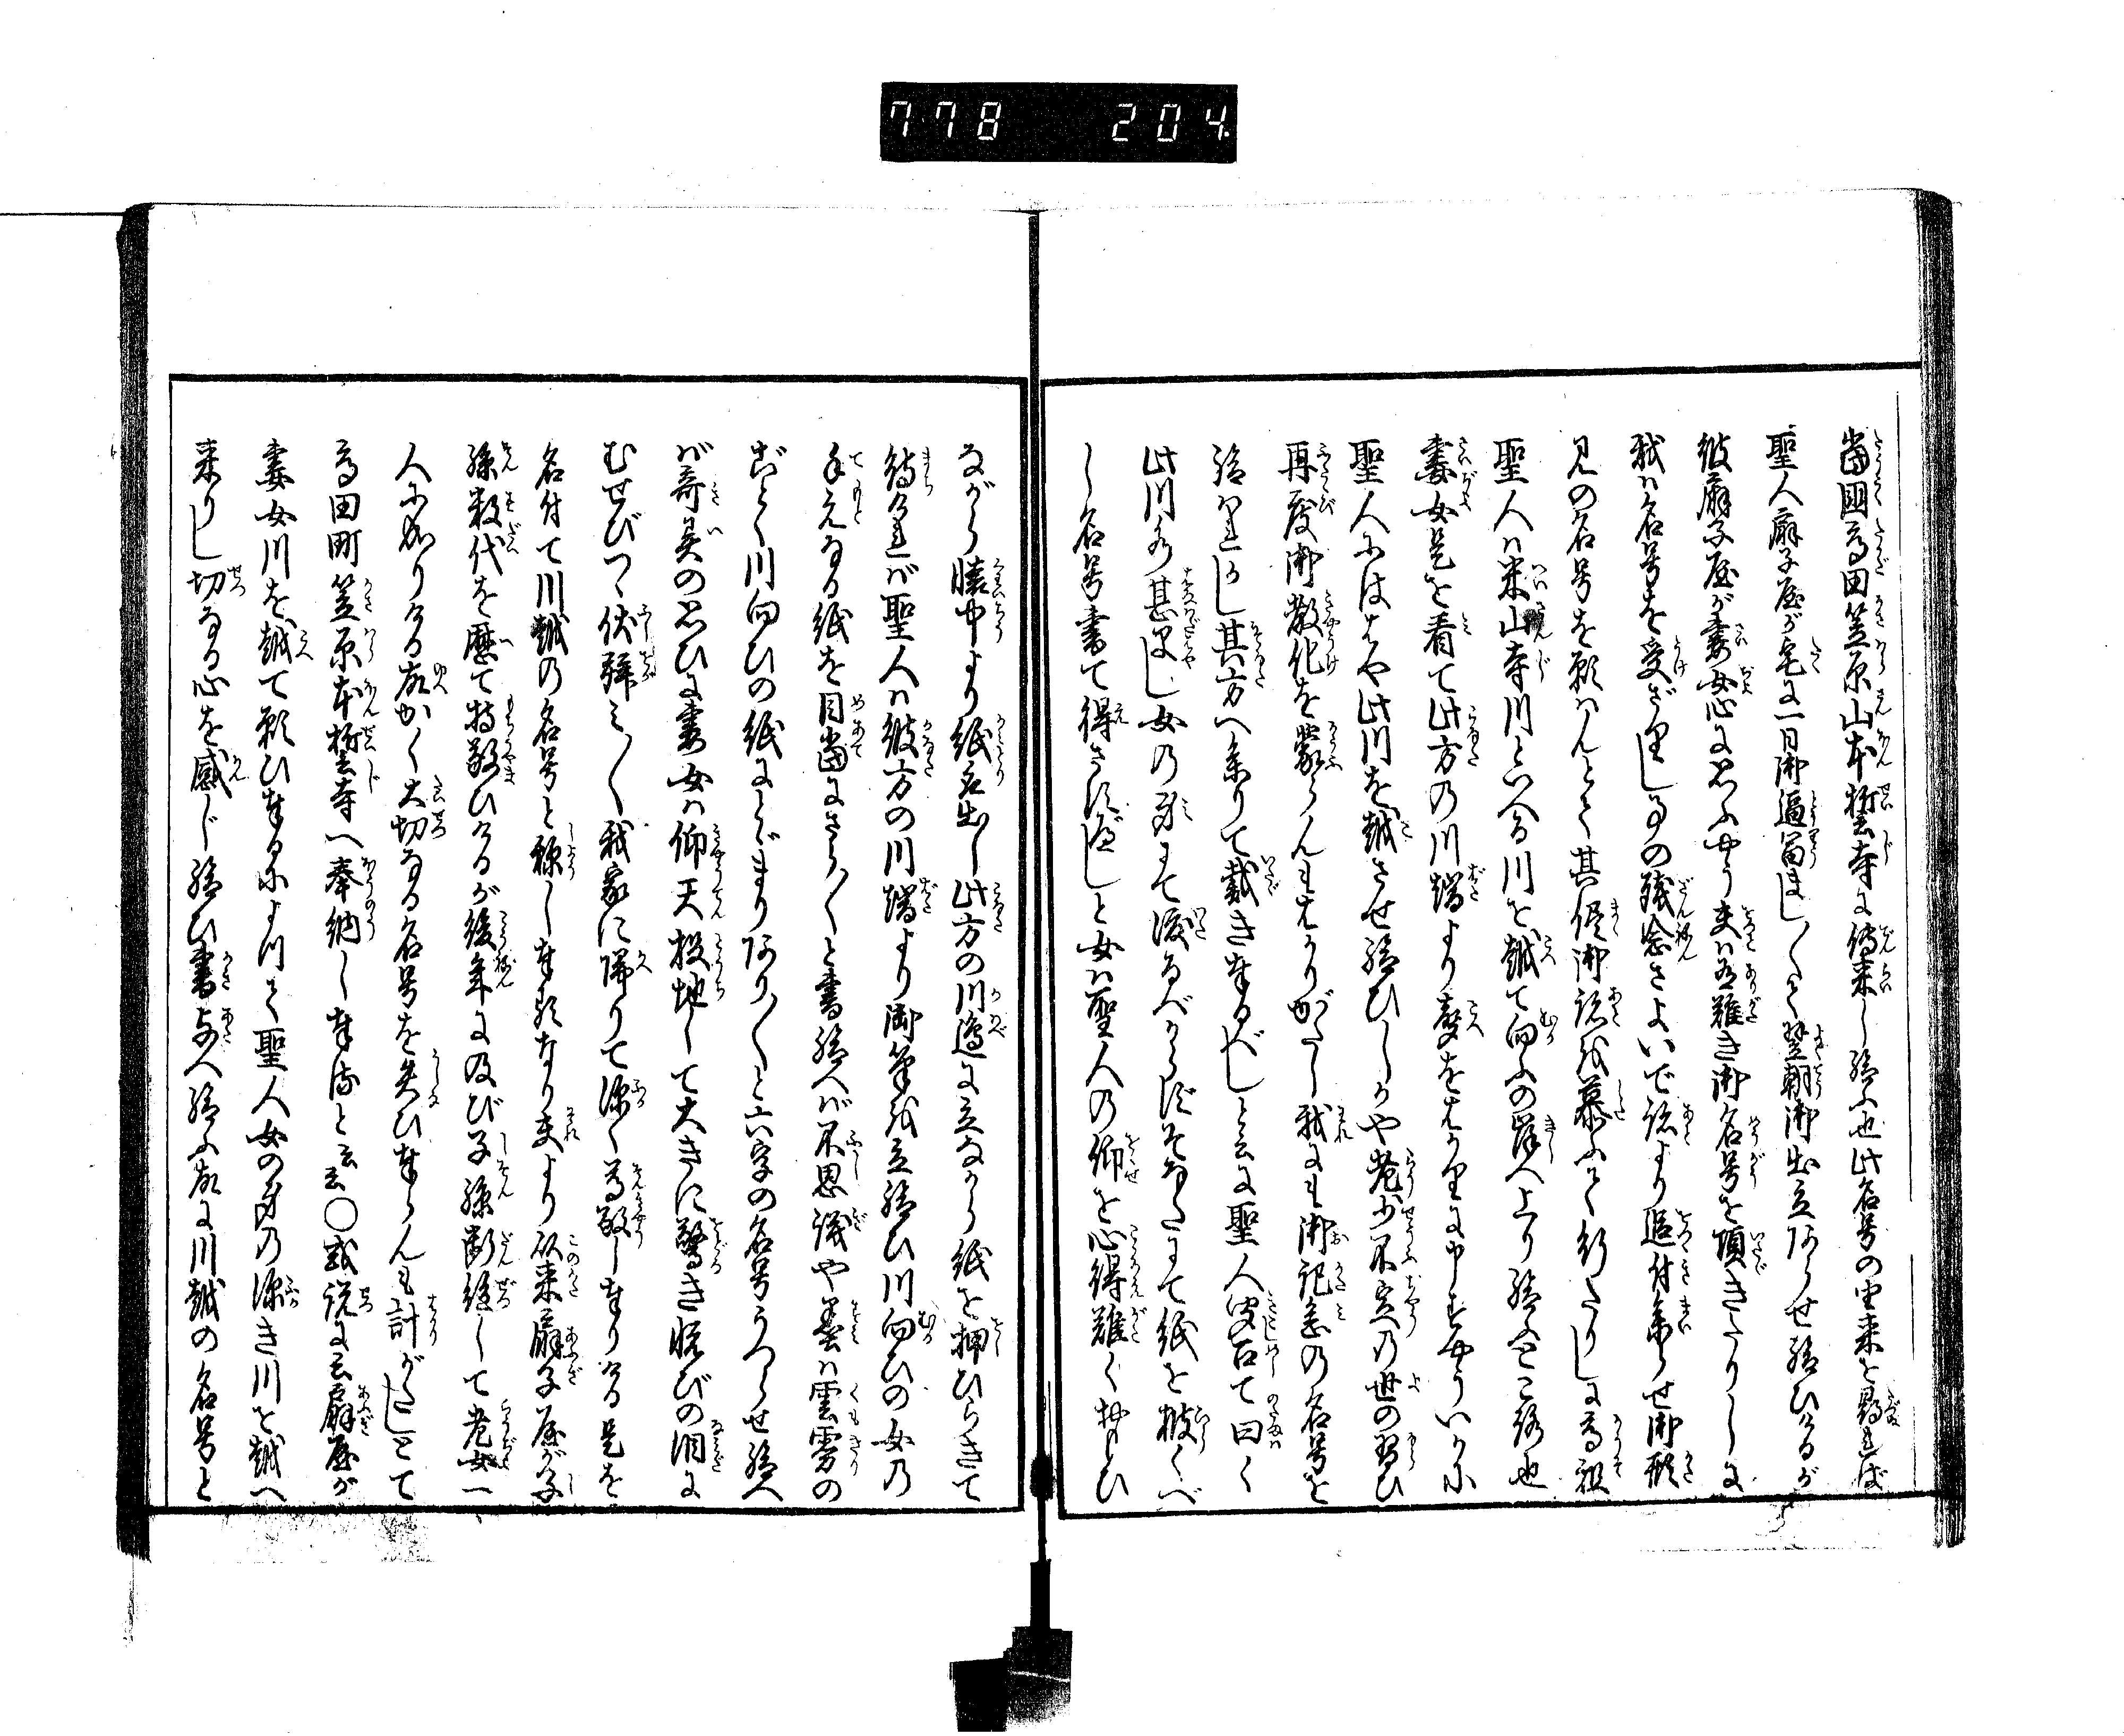 778 204
當國高田笠原山本誓寺に傳来し給ふ也此名号の由来を尋れば
聖人扇子屋が宅に一日御逼留まし〳〵て翌朝御出立あらせ給ひけるが
彼扇子屋が妻女心に思ふやう夫は有難き御名号を頂きたりしに
我は名号を受ざりし事の残念さよいで跡より追付参らせ御形
見の名号を願はんとて其侭御跡を慕ふて行たりしに高祖
聖人は米山寺川といへる川を越て向ふの岸へ上り給ふところ也
妻女是を看て此方の川端より声をはかりに申すやういかに
聖人にははや此川を越させ給ひしかや老少不定の世の習ひ
再度御教化を蒙らんもはかりがたし我にも御記念の名号を
給はれかし其方へ参りて戴き奉るべしと云に聖人聞召て曰く
此川水甚はやし女の身にて渡るべからずそなたにて紙を披くべ
し名号書て得さすべしと女は聖人の仰を心得難く思ひ
ながら懐中より紙取出し此方の川邉に立ながら紙を押ひらきて
待ければ聖人は彼方の川端より御筆を立給ひ川向ひの女の
手元なる紙を目當にさら〳〵と書給へば不思議や墨は雲霧の
ごとく川向ひの紙にとゞまりあり〳〵と六字の名号うつらせ給へ
ば奇異の思ひに妻女は仰天投地して大きに驚き悦びの泪に
むせびつゝ伏拝み〳〵我家に帰りて深く尊敬し奉りける是を
名付て川越の名号と称し奉るなり夫より以来扇子屋が子
孫数代を歴て持敬ひけるが後年に及び子孫断絶して老女一
人に成りける故かく大切なる名号を失ひ奉らんも計がたしとて
高田町笠原本誓寺へ奉納し奉ると云云〇或説に云扇屋が
妻女川を越て願ひ奉るによつて聖人女の身の深き川を越へ
来りし切なる心を感じ給ひ書与へ給ふ故に川越の名号と